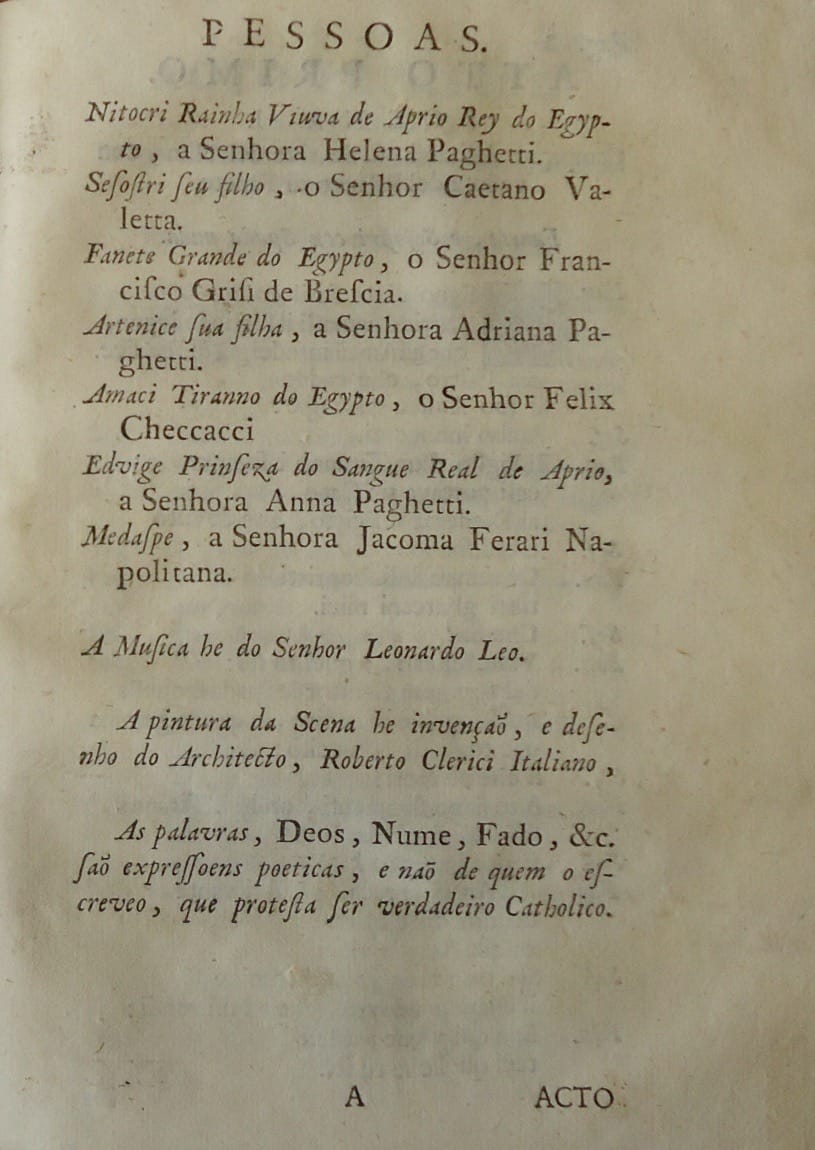 PESSOAS.
Nitocri Rainha Viuva de Aprio Rey do Egyp-
to, a Senhora Helena Paghetti.
Seſoſtri ſeu filho, o Senhor Caetano Va-
letta.
Fanete Grande do Egypto, o Senhor Fran-
ciſco Griſi de Breſcia.
Artenice ſua filha, a Senhora Adriana Pa-
ghetti.
Amaci Tiranno do Egypto, o Senhor Felix
Checcacci
Edvige Prinſeza do Sangue Real de Aprio,
a Senhora Anna Paghetti.
Medaſpe, a Senhora Jacoma Ferari Na-
politana.
A Muſica he do Senhor Leonardo Leo.
A pintura da Scena he invençaõ, e deſe-
nho do Architecto, Roberto Clerici Italiano,
As palavras, Deos, Nume, Fado, &c.
ſaõ expreſſoens poeticas, e naõ de quem o eſ-
creveo, que proteſta ſer verdadeiro Catholico.
A ACTO